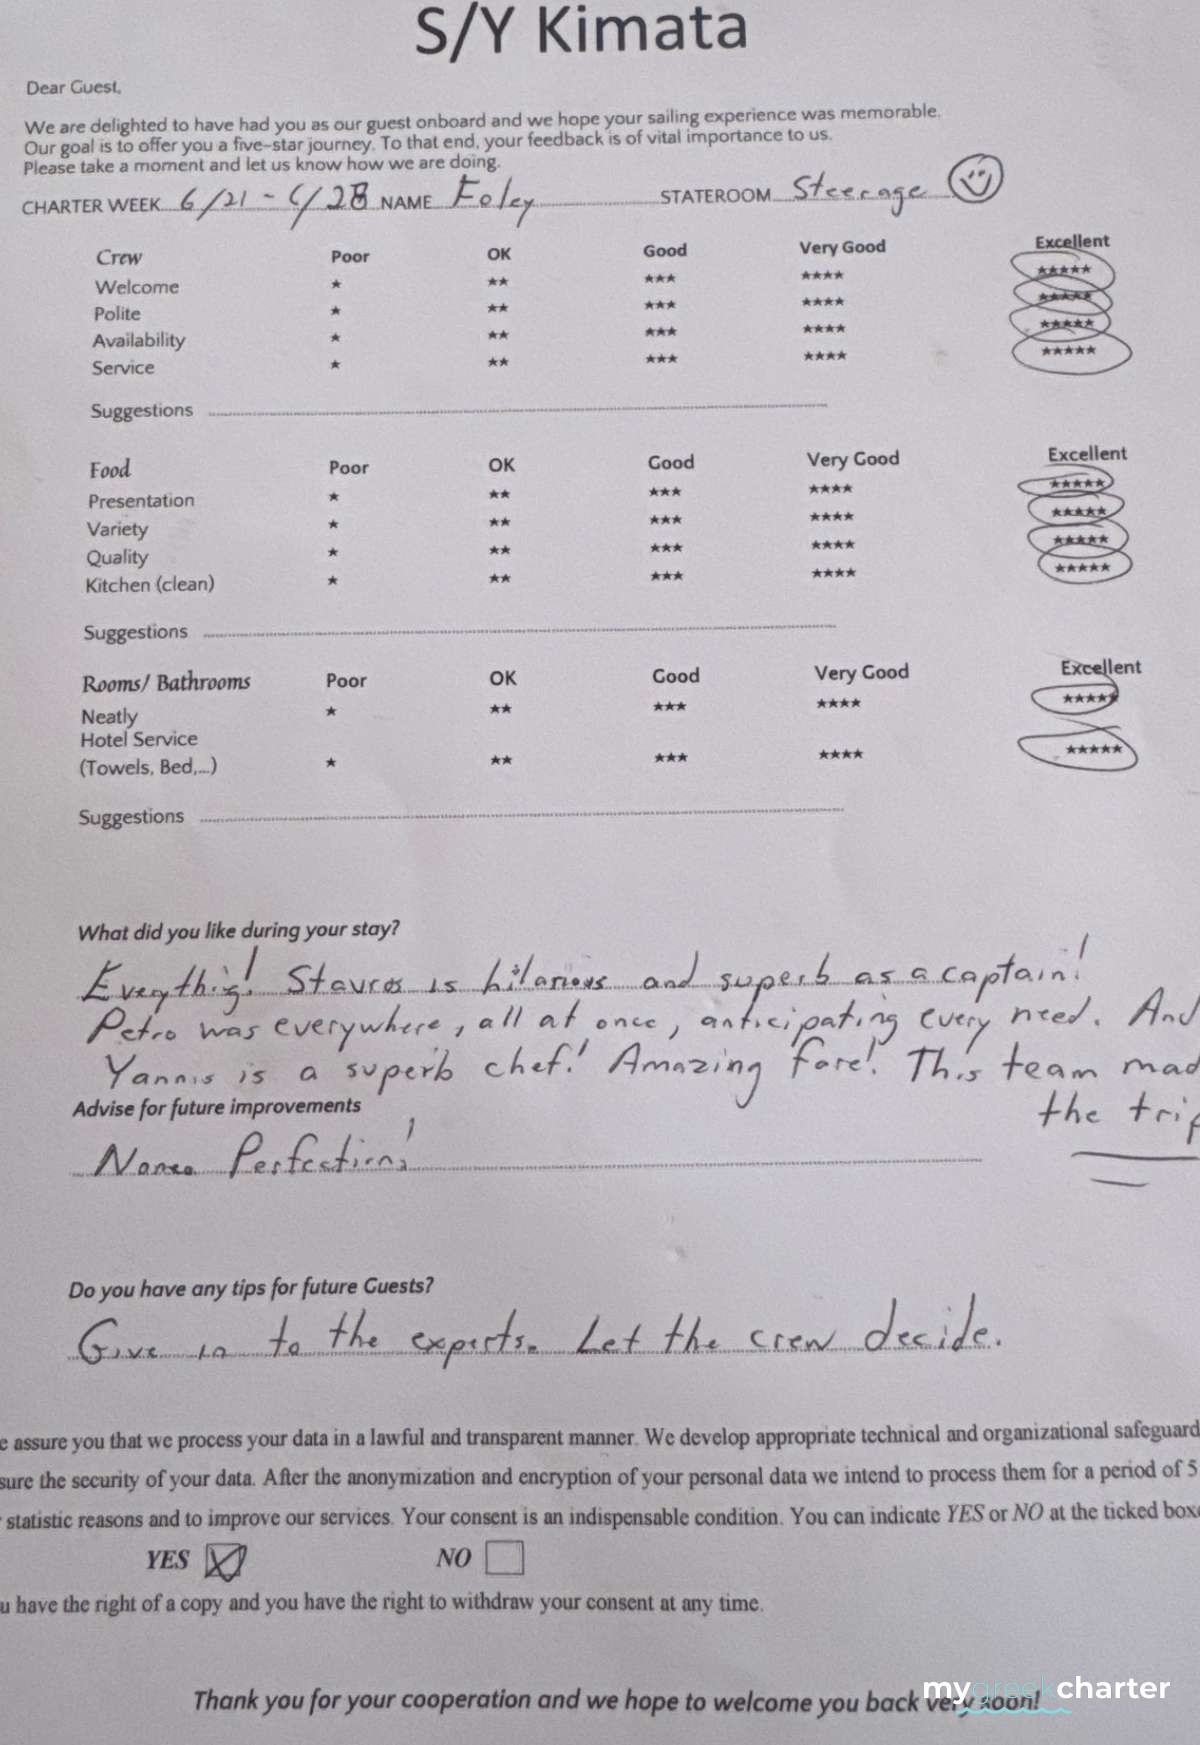 S/Y Kimata
Dear Guest,
We are delighted to have had you as our guest onboard and we hope your sailing experience was memorable.
Our goal is to offer you a five-star journey. To that end, your feedback is of vital importance to us.
Please take a moment and let us know how we are doing.
CHARTER WEEK 6/21 - 6/28 NAME Foley STATEROOM Steerage
Crew Poor OK Good Very Good Excellent
Welcome ★ ★★ ★★★ ★★★★ ★★★★★
Polite ★ ★★ ★★★ ★★★★ ★★★★★
Availability ★ ★★ ★★★ ★★★★ ★★★★★
Service ★ ★★ ★★★ ★★★★ ★★★★★
Suggestions
Food Poor OK Good Very Good Excellent
Presentation ★ ★★ ★★★ ★★★★ ★★★★★
Variety ★ ★★ ★★★ ★★★★ ★★★★★
Quality ★ ★★ ★★★ ★★★★ ★★★★★
Kitchen (clean) ★ ★★ ★★★ ★★★★ ★★★★★
Suggestions
Rooms/ Bathrooms Poor OK Good Very Good Excellent
Neatly ★ ★★ ★★★ ★★★★ ★★★★★
Hotel Service
(Towels, Bed,...) ★ ★★ ★★★ ★★★★ ★★★★★
Suggestions
What did you like during your stay?
Everything! Stavros is hilarious and superb as a captain!
Petro was everywhere, all at once, anticipating every need. And
Yannis is a superb chef! Amazing fare! This team mad
the trip
Advise for future improvements
None. Perfection!
Do you have any tips for future Guests?
Give in to the experts. Let the crew decide.
e assure you that we process your data in a lawful and transparent manner. We develop appropriate technical and organizational safeguard
sure the security of your data. After the anonymization and encryption of your personal data we intend to process them for a period of 5
statistic reasons and to improve our services. Your consent is an indispensable condition. You can indicate YES or NO at the ticked boxe
YES NO
u have the right of a copy and you have the right to withdraw your consent at any time.
Thank you for your cooperation and we hope to welcome you back very soon!
mygreekcharter